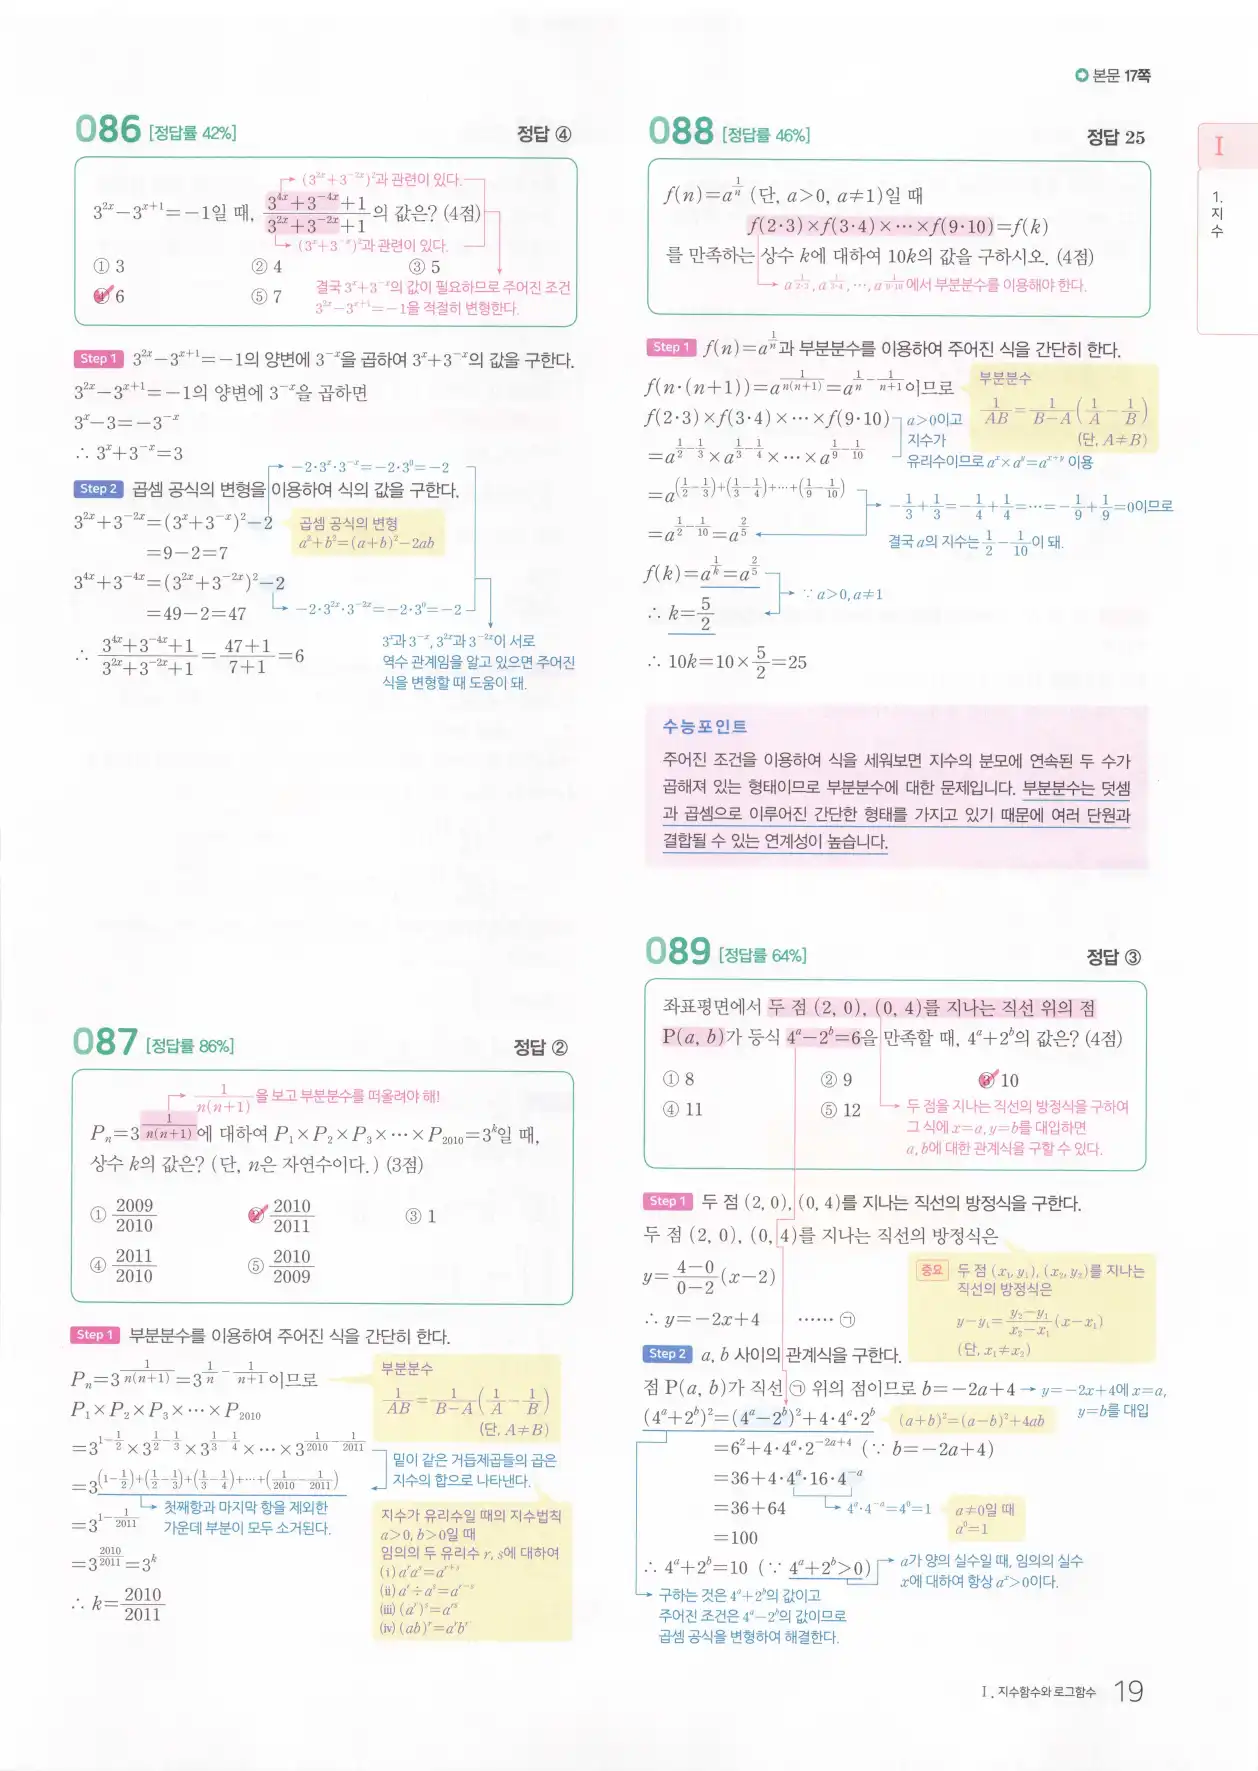 본문 17쪽
I
1. 지수
086 [정답률 42%] 정답 ④
(3²ˣ+3⁻²ˣ)²과 관련이 있다.
3²ˣ−3ˣ⁺¹=−1일 때, (3⁴ˣ+3⁻⁴ˣ+1)/(3²ˣ+3⁻²ˣ+1)의 값은? (4점)
(3ˣ+3⁻ˣ)²과 관련이 있다.
① 3 ② 4 ③ 5
④ 6 ⑤ 7
결국 3ˣ+3⁻ˣ의 값이 필요하므로 주어진 조건
3²ˣ−3ˣ⁺¹=−1을 적절히 변형한다.
Step 1 3²ˣ−3ˣ⁺¹=−1의 양변에 3⁻ˣ을 곱하여 3ˣ+3⁻ˣ의 값을 구한다.
3²ˣ−3ˣ⁺¹=−1의 양변에 3⁻ˣ을 곱하면
3ˣ−3=−3⁻ˣ
∴ 3ˣ+3⁻ˣ=3
−2·3ˣ·3⁻ˣ=−2·3⁰=−2
Step 2 곱셈 공식의 변형을 이용하여 식의 값을 구한다.
3²ˣ+3⁻²ˣ=(3ˣ+3⁻ˣ)²−2
곱셈 공식의 변형
a²+b²=(a+b)²−2ab
=9−2=7
3⁴ˣ+3⁻⁴ˣ=(3²ˣ+3⁻²ˣ)²−2
=49−2=47
−2·3²ˣ·3⁻²ˣ=−2·3⁰=−2
∴ (3⁴ˣ+3⁻⁴ˣ+1)/(3²ˣ+3⁻²ˣ+1)=(47+1)/(7+1)=6
3ˣ과 3⁻ˣ, 3²ˣ과 3⁻²ˣ이 서로
역수 관계임을 알고 있으면 주어진
식을 변형할 때 도움이 돼.
087 [정답률 86%] 정답 ②
1/(n(n+1))을 보고 부분분수를 떠올려야 해!
Pₙ=3^(1/(n(n+1)))에 대하여 P₁×P₂×P₃×⋯×P₂₀₁₀=3ᵏ일 때,
상수 k의 값은? (단, n은 자연수이다.) (3점)
① 2009/2010 ② 2010/2011 ③ 1
④ 2011/2010 ⑤ 2010/2009
Step 1 부분분수를 이용하여 주어진 식을 간단히 한다.
Pₙ=3^(1/(n(n+1)))=3^(1/n−1/(n+1))이므로
부분분수
1/AB=1/(B−A)(1/A−1/B)
(단, A≠B)
P₁×P₂×P₃×⋯×P₂₀₁₀
=3^(1−1/2)×3^(1/2−1/3)×3^(1/3−1/4)×⋯×3^(1/2010−1/2011)
=3^((1−1/2)+(1/2−1/3)+(1/3−1/4)+⋯+(1/2010−1/2011))
밑이 같은 거듭제곱들의 곱은
지수의 합으로 나타낸다.
첫째항과 마지막 항을 제외한
가운데 부분이 모두 소거된다.
=3^(1−1/2011)
=3^(2010/2011)=3ᵏ
∴ k=2010/2011
지수가 유리수일 때의 지수법칙
a>0, b>0일 때
임의의 두 유리수 r, s에 대하여
(ⅰ) aʳaˢ=aʳ⁺ˢ
(ⅱ) aʳ÷aˢ=aʳ⁻ˢ
(ⅲ) (aʳ)ˢ=aʳˢ
(ⅳ) (ab)ʳ=aʳbʳ
088 [정답률 46%] 정답 25
f(n)=a^(1/n) (단, a>0, a≠1)일 때
f(2·3)×f(3·4)×⋯×f(9·10)=f(k)
를 만족하는 상수 k에 대하여 10k의 값을 구하시오. (4점)
a^(1/(2·3)), a^(1/(3·4)), ⋯, a^(1/(9·10))에서 부분분수를 이용해야 한다.
Step 1 f(n)=a^(1/n)과 부분분수를 이용하여 주어진 식을 간단히 한다.
f(n·(n+1))=a^(1/(n(n+1)))=a^(1/n−1/(n+1))이므로
부분분수
1/AB=1/(B−A)(1/A−1/B)
(단, A≠B)
f(2·3)×f(3·4)×⋯×f(9·10)
a>0이고
지수가
유리수이므로 aˣ×aʸ=aˣ⁺ʸ 이용
=a^(1/2−1/3)×a^(1/3−1/4)×⋯×a^(1/9−1/10)
=a^((1/2−1/3)+(1/3−1/4)+⋯+(1/9−1/10))
−1/3+1/3=−1/4+1/4=⋯=−1/9+1/9=0이므로
결국 a의 지수는 1/2−1/10이 돼.
=a^(1/2−1/10)=a^(2/5)
f(k)=a^(1/k)=a^(2/5)
∵ a>0, a≠1
∴ k=5/2
∴ 10k=10×5/2=25
수능포인트
주어진 조건을 이용하여 식을 세워보면 지수의 분모에 연속된 두 수가
곱해져 있는 형태이므로 부분분수에 대한 문제입니다. 부분분수는 덧셈
과 곱셈으로 이루어진 간단한 형태를 가지고 있기 때문에 여러 단원과
결합될 수 있는 연계성이 높습니다.
089 [정답률 64%] 정답 ③
좌표평면에서 두 점 (2, 0), (0, 4)를 지나는 직선 위의 점
P(a, b)가 등식 4ᵃ−2ᵇ=6을 만족할 때, 4ᵃ+2ᵇ의 값은? (4점)
① 8 ② 9 ③ 10
④ 11 ⑤ 12
두 점을 지나는 직선의 방정식을 구하여
그 식에 x=a, y=b를 대입하면
a, b에 대한 관계식을 구할 수 있다.
Step 1 두 점 (2, 0), (0, 4)를 지나는 직선의 방정식을 구한다.
두 점 (2, 0), (0, 4)를 지나는 직선의 방정식은
y=(4−0)/(0−2)(x−2)
∴ y=−2x+4 ⋯⋯ ㉠
중요 두 점 (x₁, y₁), (x₂, y₂)를 지나는
직선의 방정식은
y−y₁=(y₂−y₁)/(x₂−x₁)(x−x₁)
(단, x₁≠x₂)
Step 2 a, b 사이의 관계식을 구한다.
점 P(a, b)가 직선 ㉠ 위의 점이므로 b=−2a+4
y=−2x+4에 x=a,
y=b를 대입
(4ᵃ+2ᵇ)²=(4ᵃ−2ᵇ)²+4·4ᵃ·2ᵇ
(a+b)²=(a−b)²+4ab
=6²+4·4ᵃ·2⁻²ᵃ⁺⁴ (∵ b=−2a+4)
=36+4·4ᵃ·16·4⁻ᵃ
=36+64
4ᵃ·4⁻ᵃ=4⁰=1
a≠0일 때
a⁰=1
=100
∴ 4ᵃ+2ᵇ=10 (∵ 4ᵃ+2ᵇ>0)
a가 양의 실수일 때, 임의의 실수
x에 대하여 항상 aˣ>0이다.
구하는 것은 4ᵃ+2ᵇ의 값이고
주어진 조건은 4ᵃ−2ᵇ의 값이므로
곱셈 공식을 변형하여 해결한다.
I. 지수함수와 로그함수 19